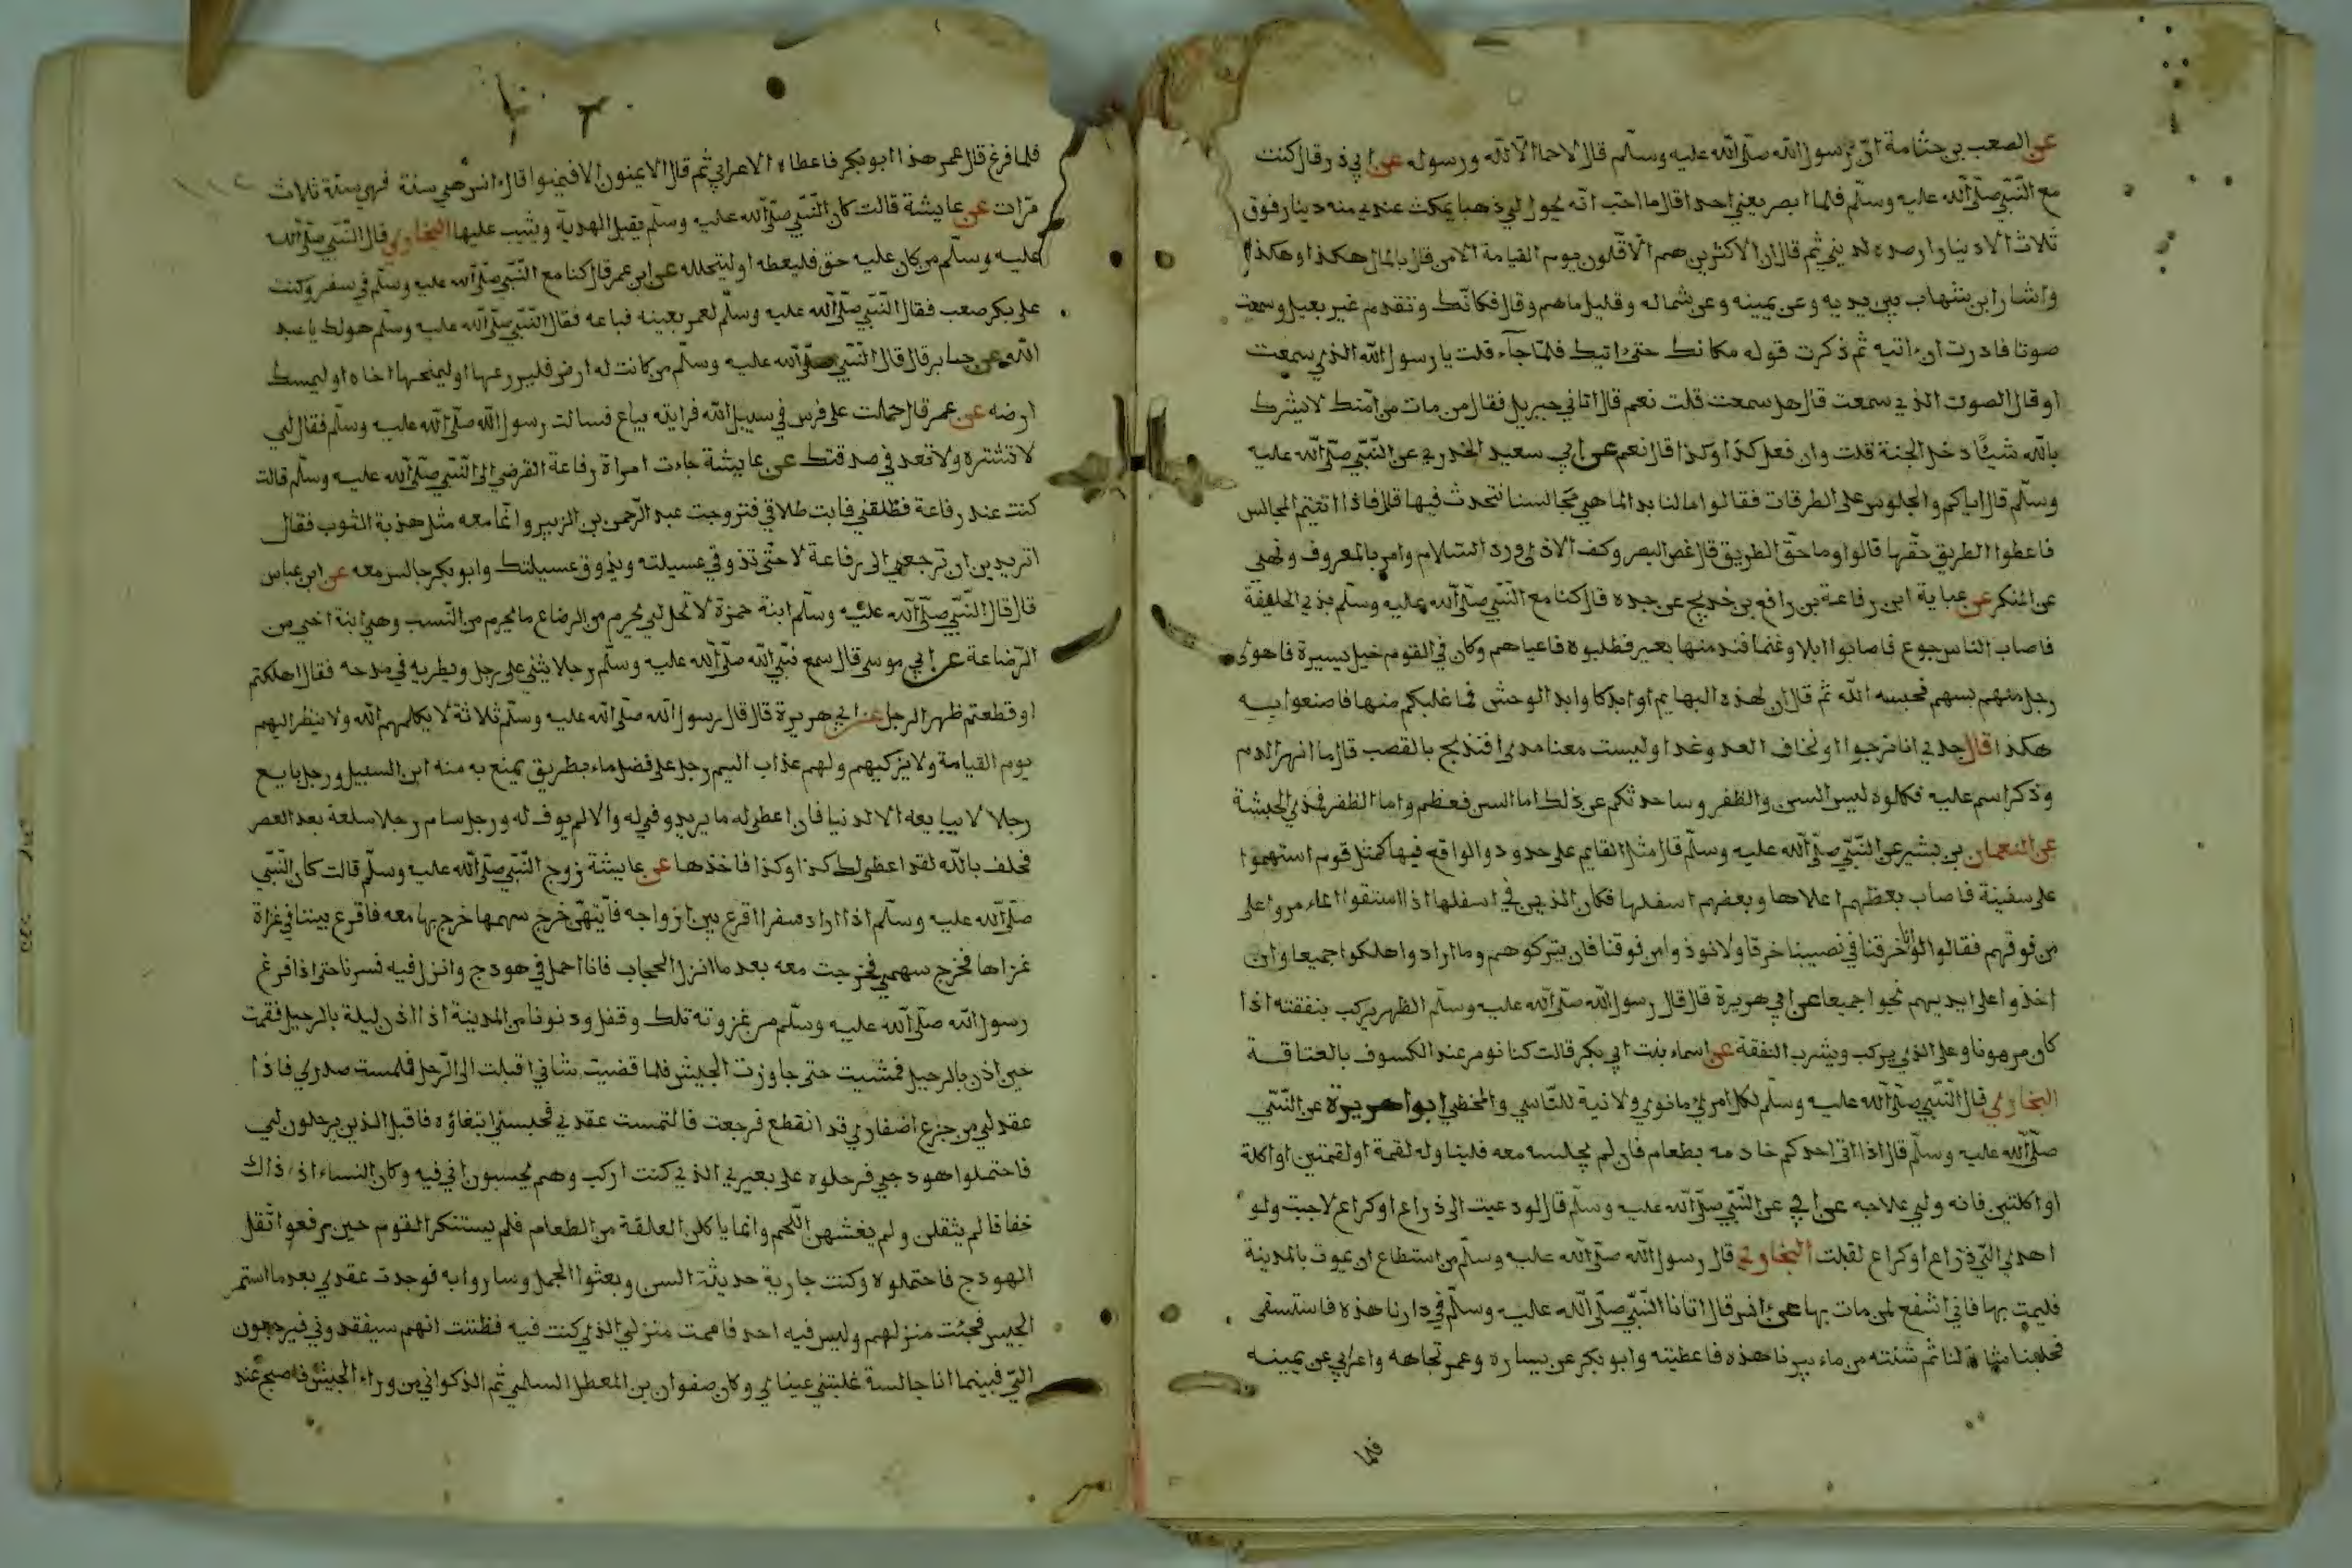 عن الصعب بن جثامة انّ رسول الله صلّى الله عليه وسلّم قال لا حما الا لله ورسوله عن ابي ذر قال كنت
مع النّبي صلّى الله عليه وسلّم فلما ابصر يعني احدا قال ما احب انّه يحول لي ذهبا يمكث عندي منه دينار فوق
ثلاث الا دينارا ارصده لديني ثم قال ان الاكثرين هم الاقلون يوم القيامة الا من قال بالمال هكذا وهكذا
واشار ابن شهاب بين يديه وعن يمينه وعن شماله وقليل ما هم وقال فكانك وتقدم غير بعيد وسمعت
صوتا فادرت ان اتيه ثم ذكرت قوله مكانك حتى اتيك فلمّا جآء قلت يا رسول الله الذي سمعت
او قال الصوت الذي سمعت قال هل سمعت قلت نعم قال اتاني جبريل فقال من مات من امتك لا يشرك
بالله شيئا دخل الجنة قلت وان فعل كذا وكذا قال نعم عن ابي سعيد الخدري عن النّبي صلّى الله عليه
وسلّم قال اياكم والجلوس على الطرقات فقالوا مالنا بد انما هي مجالسنا نتحدث فيها قال فاذا اتيتم المجالس
فاعطوا الطريق حقّها قالوا وما حقّ الطريق قال غض البصر وكف الاذى ورد السلام وامر بالمعروف ونهي
عن المنكر عن عباية ابن رفاعة بن رافع بن خديج عن جده قال كنا مع النّبي صلّى الله عليه وسلّم بذي الحليفة
فاصاب الناس جوع فاصابوا ابلا وغنما فند منها بعير فطلبوه فاعياهم وكان في القوم خيل يسيرة فاهوى
رجل منهم بسهم فحبسه الله ثم قال ان لهذه البهايم اوابد كاوابد الوحش فما غلبكم منها فاصنعوا به
هكذا قال جدي انا نرجوا او نخاف العدو غدا وليست معنا مدى افنذبح بالقصب قال ما انهر الدم
وذكر اسم عليه فكلوه ليس السن والظفر وساحدثكم عن ذلك اما السن فعظم واما الظفر فمدى الحبشة
عن النعمان بن بشير عن النّبي صلّى الله عليه وسلّم قال مثل القايم على حدود والواقع فيها كمثل قوم استهموا
على سفينة فاصاب بعظهم اعلاها وبعضهم اسفلها فكان الذين في اسفلها اذا استقوا الماء مروا على
من فوقهم فقالوا لو انا خرقنا في نصيبنا خرقا ولا نوذ وا من فوقنا فان يتركوهم وما ارادوا هلكوا جميعا وان
اخذوا على ايديهم نجوا جميعا عن ابي هريرة قال قال رسول الله صلّى الله عليه وسلّم الظهر يركب بنفقته اذا
كان مرهونا وعلى الذي يركب ويشرب النفقة عن اسماء بنت ابي بكر قالت كنا نومر عند الكسوف بالعتاقة
البخاري قال النّبي صلّى الله عليه وسلّم لكل امرئ ما نوى ولا نية للنّاسي والمخطي ابوا هريرة عن النّبي
صلّى الله عليه وسلّم قال اذا اتى احدكم خادمه بطعام فان لم يجلسه معه فليناوله لقمة او لقمتين او اكلة
او اكلتين فانه ولي علاجه عن ابي عن النّبي صلّى الله عليه وسلّم قال لو دعيت الى ذراع او كراع لاجبت ولو
اهدي اليّ ذراع او كراع لقبلت البخاري قال رسول الله صلّى الله عليه وسلّم من استطاع ان يموت بالمدينة
فليمت بها فاني اشفع لمن مات بها عن انس قال اتانا النّبي صلّى الله عليه وسلّم في دارنا هذه فاستسقى
فحلبنا شاة لنا ثم شئته من ماء بيرنا هذه فاعطيته وابو بكر عن يساره وعمر تجاهه واعرابي عن يمينه
فلما
فلما فرغ قال عمر هذا ابو بكر فاعطاه الاعرابي ثم قال الايمنون الا فيمنوا قال انس هي سنة فهي سنة ثلاث
مرّات عن عايشة قالت كان النّبي صلّى الله عليه وسلّم يقبل الهدية ويثيب عليها البخاري قال النّبي صلّى الله
عليه وسلّم من كان عليه حق فليعطه او ليتحلله عن ابن عمر قال كنا مع النّبي صلّى الله عليه وسلّم في سفر وكنت
على بكر صعب فقال النّبي صلّى الله عليه وسلّم لعمر بعينه فباعه فقال النّبي صلّى الله عليه وسلّم هو لك يا عبد
الله عن جابر قال قال النّبي صلّى الله عليه وسلّم من كانت له ارض فليزرعها او ليمنحها اخاه او ليمسك
ارضه عن عمر قال حملت على فرس في سبيل الله فرايته يباع فسالت رسول الله صلّى الله عليه وسلّم فقال لي
لا تشتره ولا تعد في صدقتك عن عايشة جاءت امراة رفاعة القرضي الى النّبي صلّى الله عليه وسلّم قالت
كنت عند رفاعة فطلقني فابت طلاقي فتزوجت عبد الرّحمن بن الزبير وانّما معه مثل هدبة الثوب فقال
اتريدين ان ترجعي الى رفاعة لا حتّى تذوقي عسيلته ويذوق عسيلتك وابو بكر جالس معه عن ابن عباس
قال قال النّبي صلّى الله عليه وسلّم ابنة حمزة لا تحل لي يحرم من الرضاع ما يحرم من النّسب وهي ابنة اخي من
الرّضاعة عن ابي موسى قال سمع نبّي الله صلّى الله عليه وسلّم رجلا يثني على رجل ويطريه في مدحه فقال اهلكتم
او قطعتم ظهر الرجل عن ابي هريرة قال قال رسول الله صلّى الله عليه وسلّم ثلاثة لا يكلمهم الله ولا ينظر اليهم
يوم القيامة ولا يزكيهم ولهم عذاب اليم رجل على فضل ماء بطريق يمنع به منه ابن السبيل ورجل بايع
رجلا لا يبايعه الا للدنيا فان اعطى له ما يريد وفي له والا لم يوف له ورجل سام رجلا سلعة بعد العصر
فحلف بالله لقد اعطى لك كذا وكذا فاخذها عن عايشة زوج النّبي صلّى الله عليه وسلّم قالت كان النّبي
صلّى الله عليه وسلّم اذا اراد سفرا اقرع بين ازواجه فايّتهنّ خرج سهمها خرج بها معه فاقرع بيننا في غزاة
غزاها فخرج سهمي فخرجت معه بعد ما انزل الحجاب فانا احمل في هودج وانزل فيه فسرنا حتى اذا فرغ
رسول الله صلّى الله عليه وسلّم من غزوته تلك وقفل ودنونا من المدينة اذا اذن ليلة بالرحيل فقمت
حين اذن بالرحيل فمشيت حتى جاوزت الجيش فلما قضيت شاني اقبلت الى الرّحل فلمست صدري فاذا
عقد لي من جزع اضفار قد انقطع فرجعت فالتمست عقدي فحبسني ابتغاؤه فاقبل الذين يرحلون لي
فاحتملوا هودجي فرحلوه على بعيري الذي كنت اركب وهم يحسبون اني فيه وكان النساء اذ ذاك
خفافا لم يثقلن ولم يغشهن اللّحم وانما ياكلن العلقة من الطعام فلم يستنكر القوم حين رفعوا ثقل
الهودج فاحتملوه وكنت جارية حديثة السن وبعثوا الجمل وساروا به فوجدت عقدي بعد ما استمر
الجيس فجئت منزلهم وليس فيه احد فاممت منزلي الذي كنت فيه فظننت انهم سيفقدوني فيرجعون
اليّ فبينما انا جالسة غلبتني عيناي وكان صفوان بن المعطل السلمي ثم الذكواني من وراء الجيش فاصبح عند